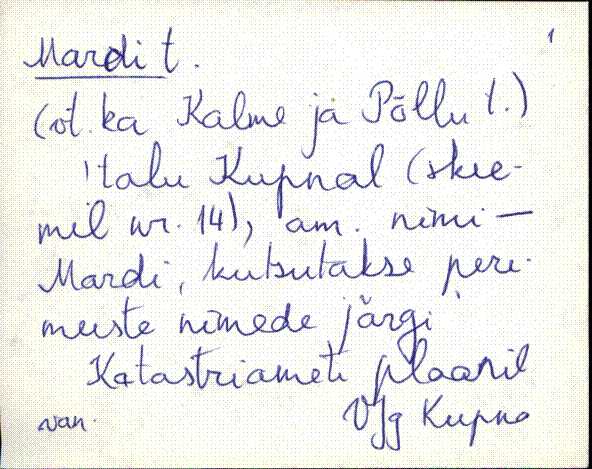 1
Mardi t.
(vt. ka Kalme ja Põllu t.)
'talu Kupnal (skee-
mil nr. 14), am. nimi —
Mardi, kutsutakse pere-
meeste nimede järgi'
Katastriameti plaanil
van. VJg Kupna